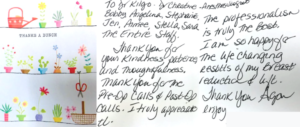 THANKS A BUNCH
To Dr Kingo Dr Christine
Bobby Angelina, Stephanie,
Jen, Aimee, Stella, Sand
The Entire Staff.
Thank You for
your Kindness, patience
and thoughtfulness.
Thank You for the
Pre-Op Calls & Post-Op
Calls. I truly appreciate
The professionalism
is truly the Best
I am so happy for
The life Changing
results of my Breast
reduction & lift.
Thank You Again
enjoy